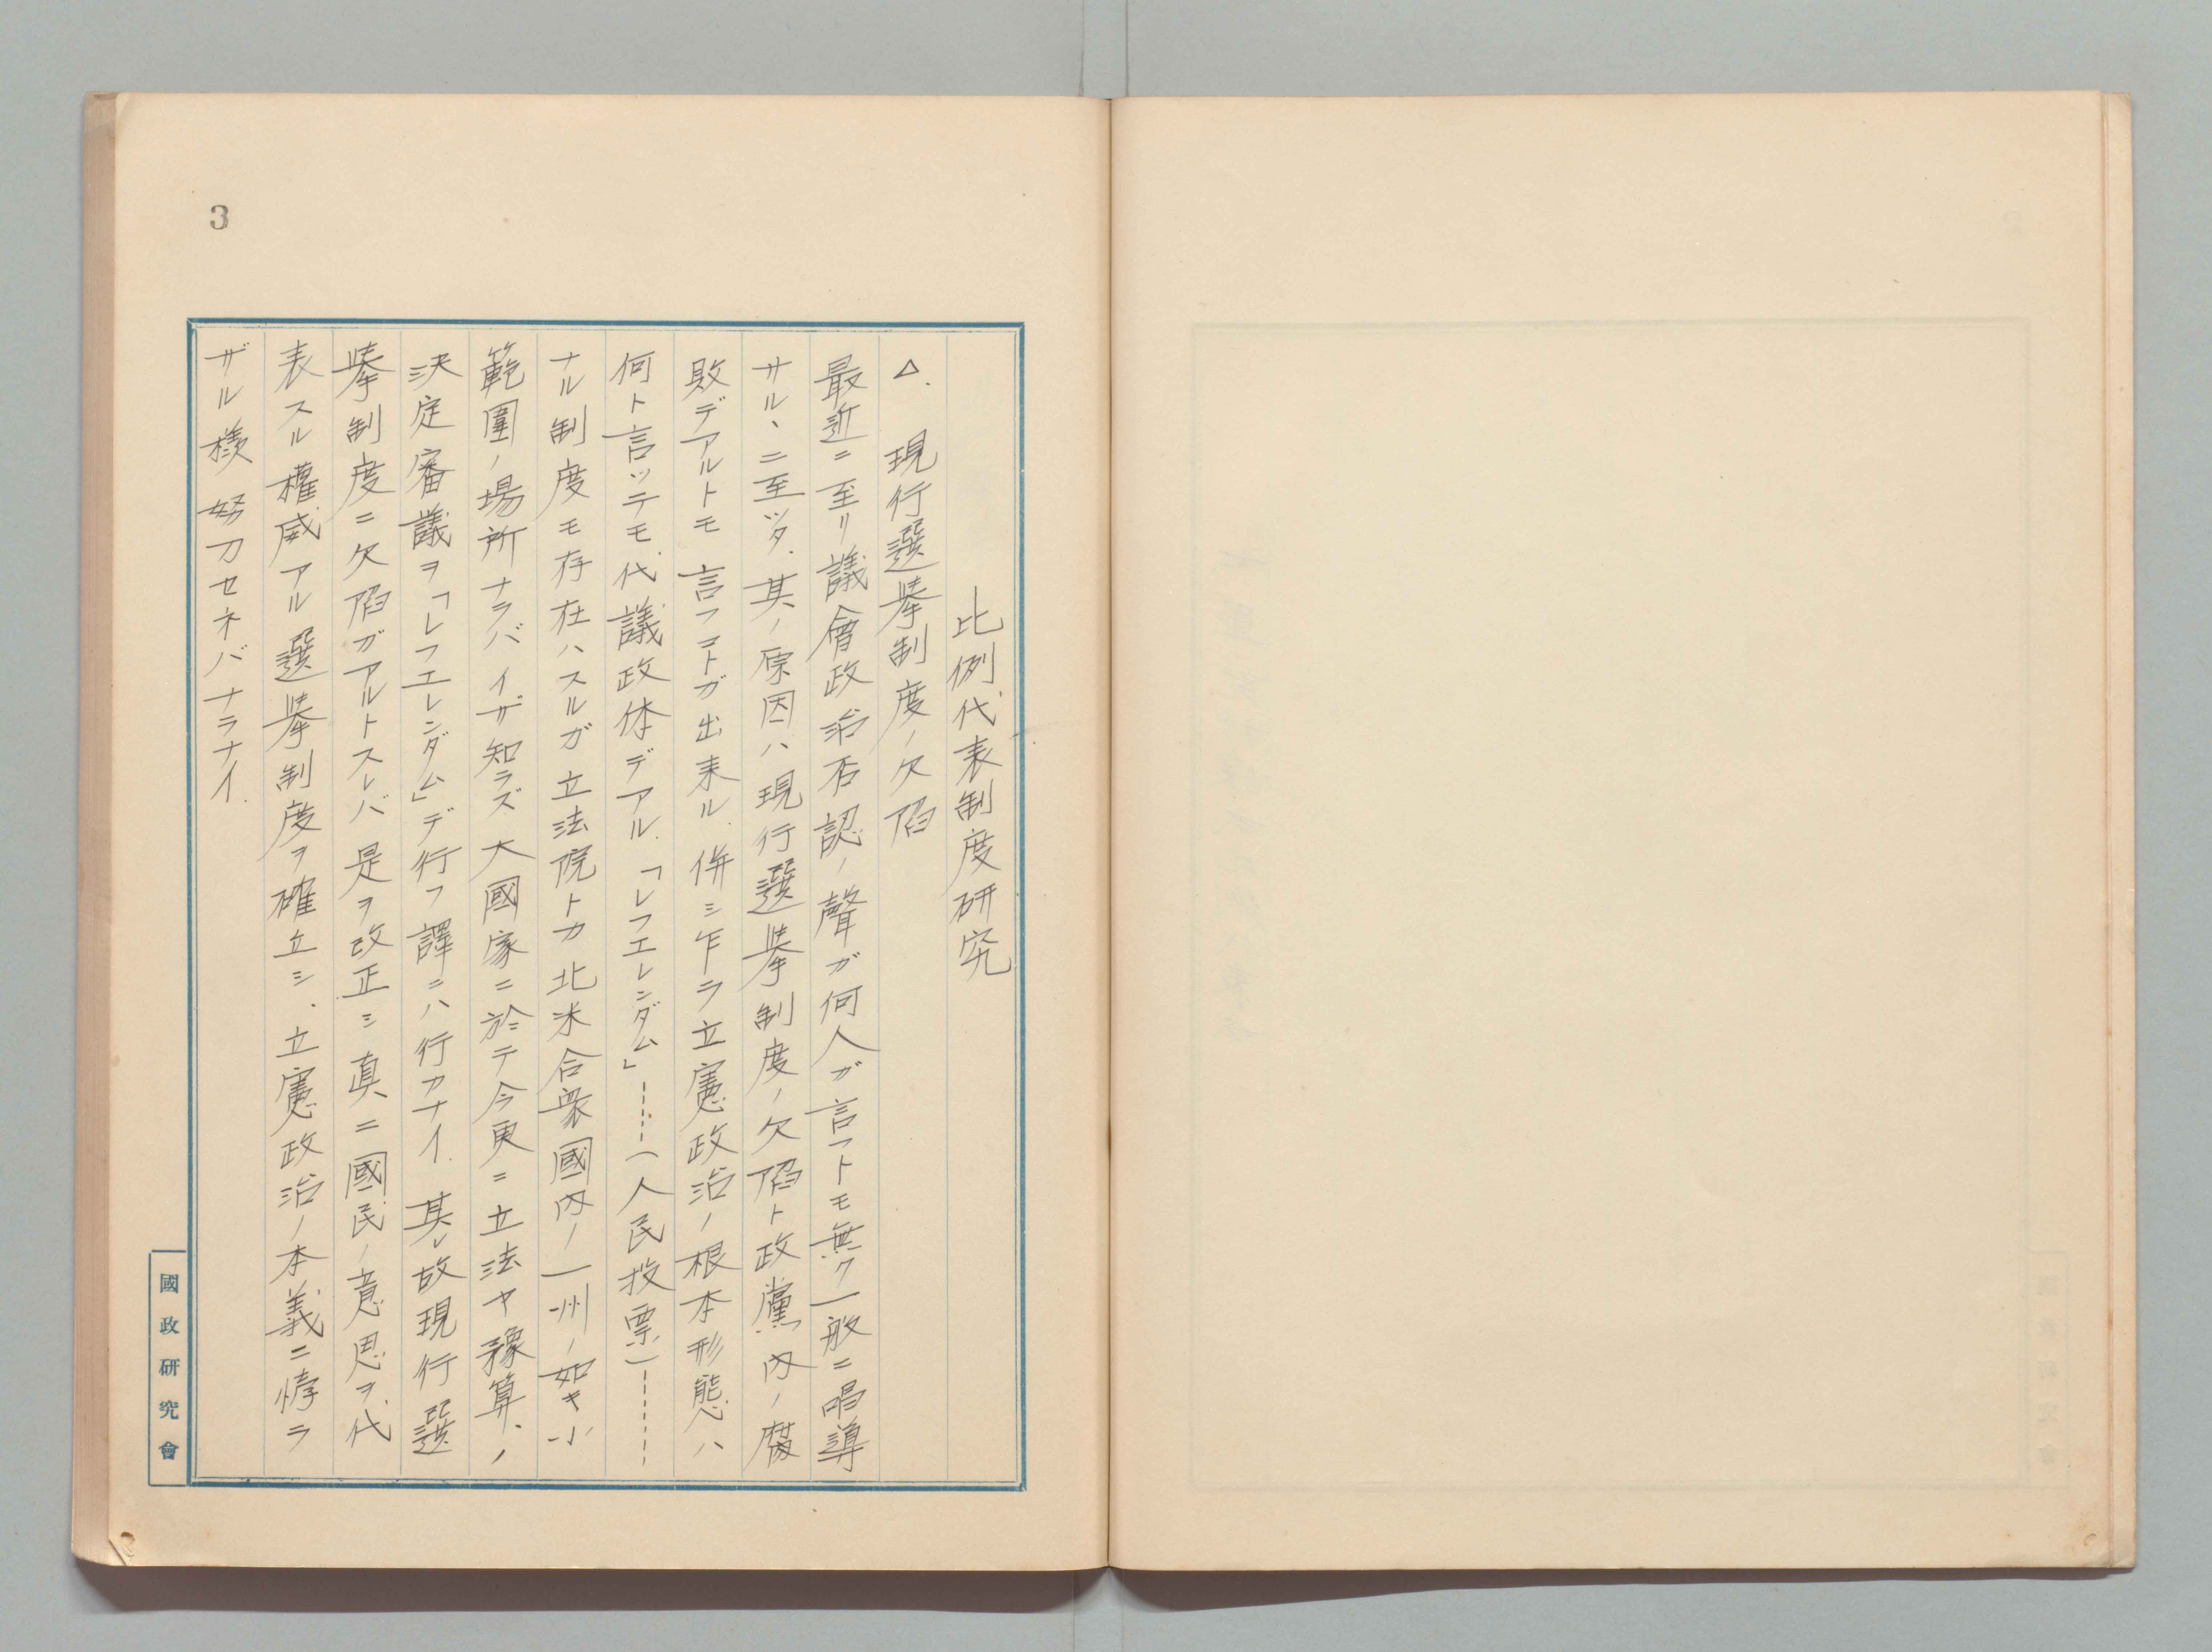 3
比例代表制度研究
△.現行選擧制度ノ欠陷
最近ニ至リ議會政治否認ノ聲ガ何人ガ言フトモ無ク一般ニ唱導
サルヽニ至ッタ.其ノ原因ハ現行選擧制度ノ欠陷ト政黨内ノ腐
敗デアルトモ言フコトガ出来ル.併シ乍ラ立憲政治ノ根本形態ハ
何ト言ッテモ代議政体デアル.「レフエレンダム」……(人民投票)……
ナル制度モ存在ハスルガ立法院トカ北米合衆國内ノ一州ノ如キ小
範圍ノ場所ナラバイザ知ラズ大國家ニ於テ今更ニ立法ヤ豫算、ノ
決定審議ヲ「レフエレンダム」デ行フ譯ニハ行カナイ.其レ故現行選
擧制度ニ欠陷ガアルトスレバ是ヲ改正シ真ニ國民ノ意思ヲ代
表スル權威アル選擧制度ヲ確立シ、立憲政治ノ本義ニ悖ラ
ザル樣努力セネバナラナイ.
國政研究會